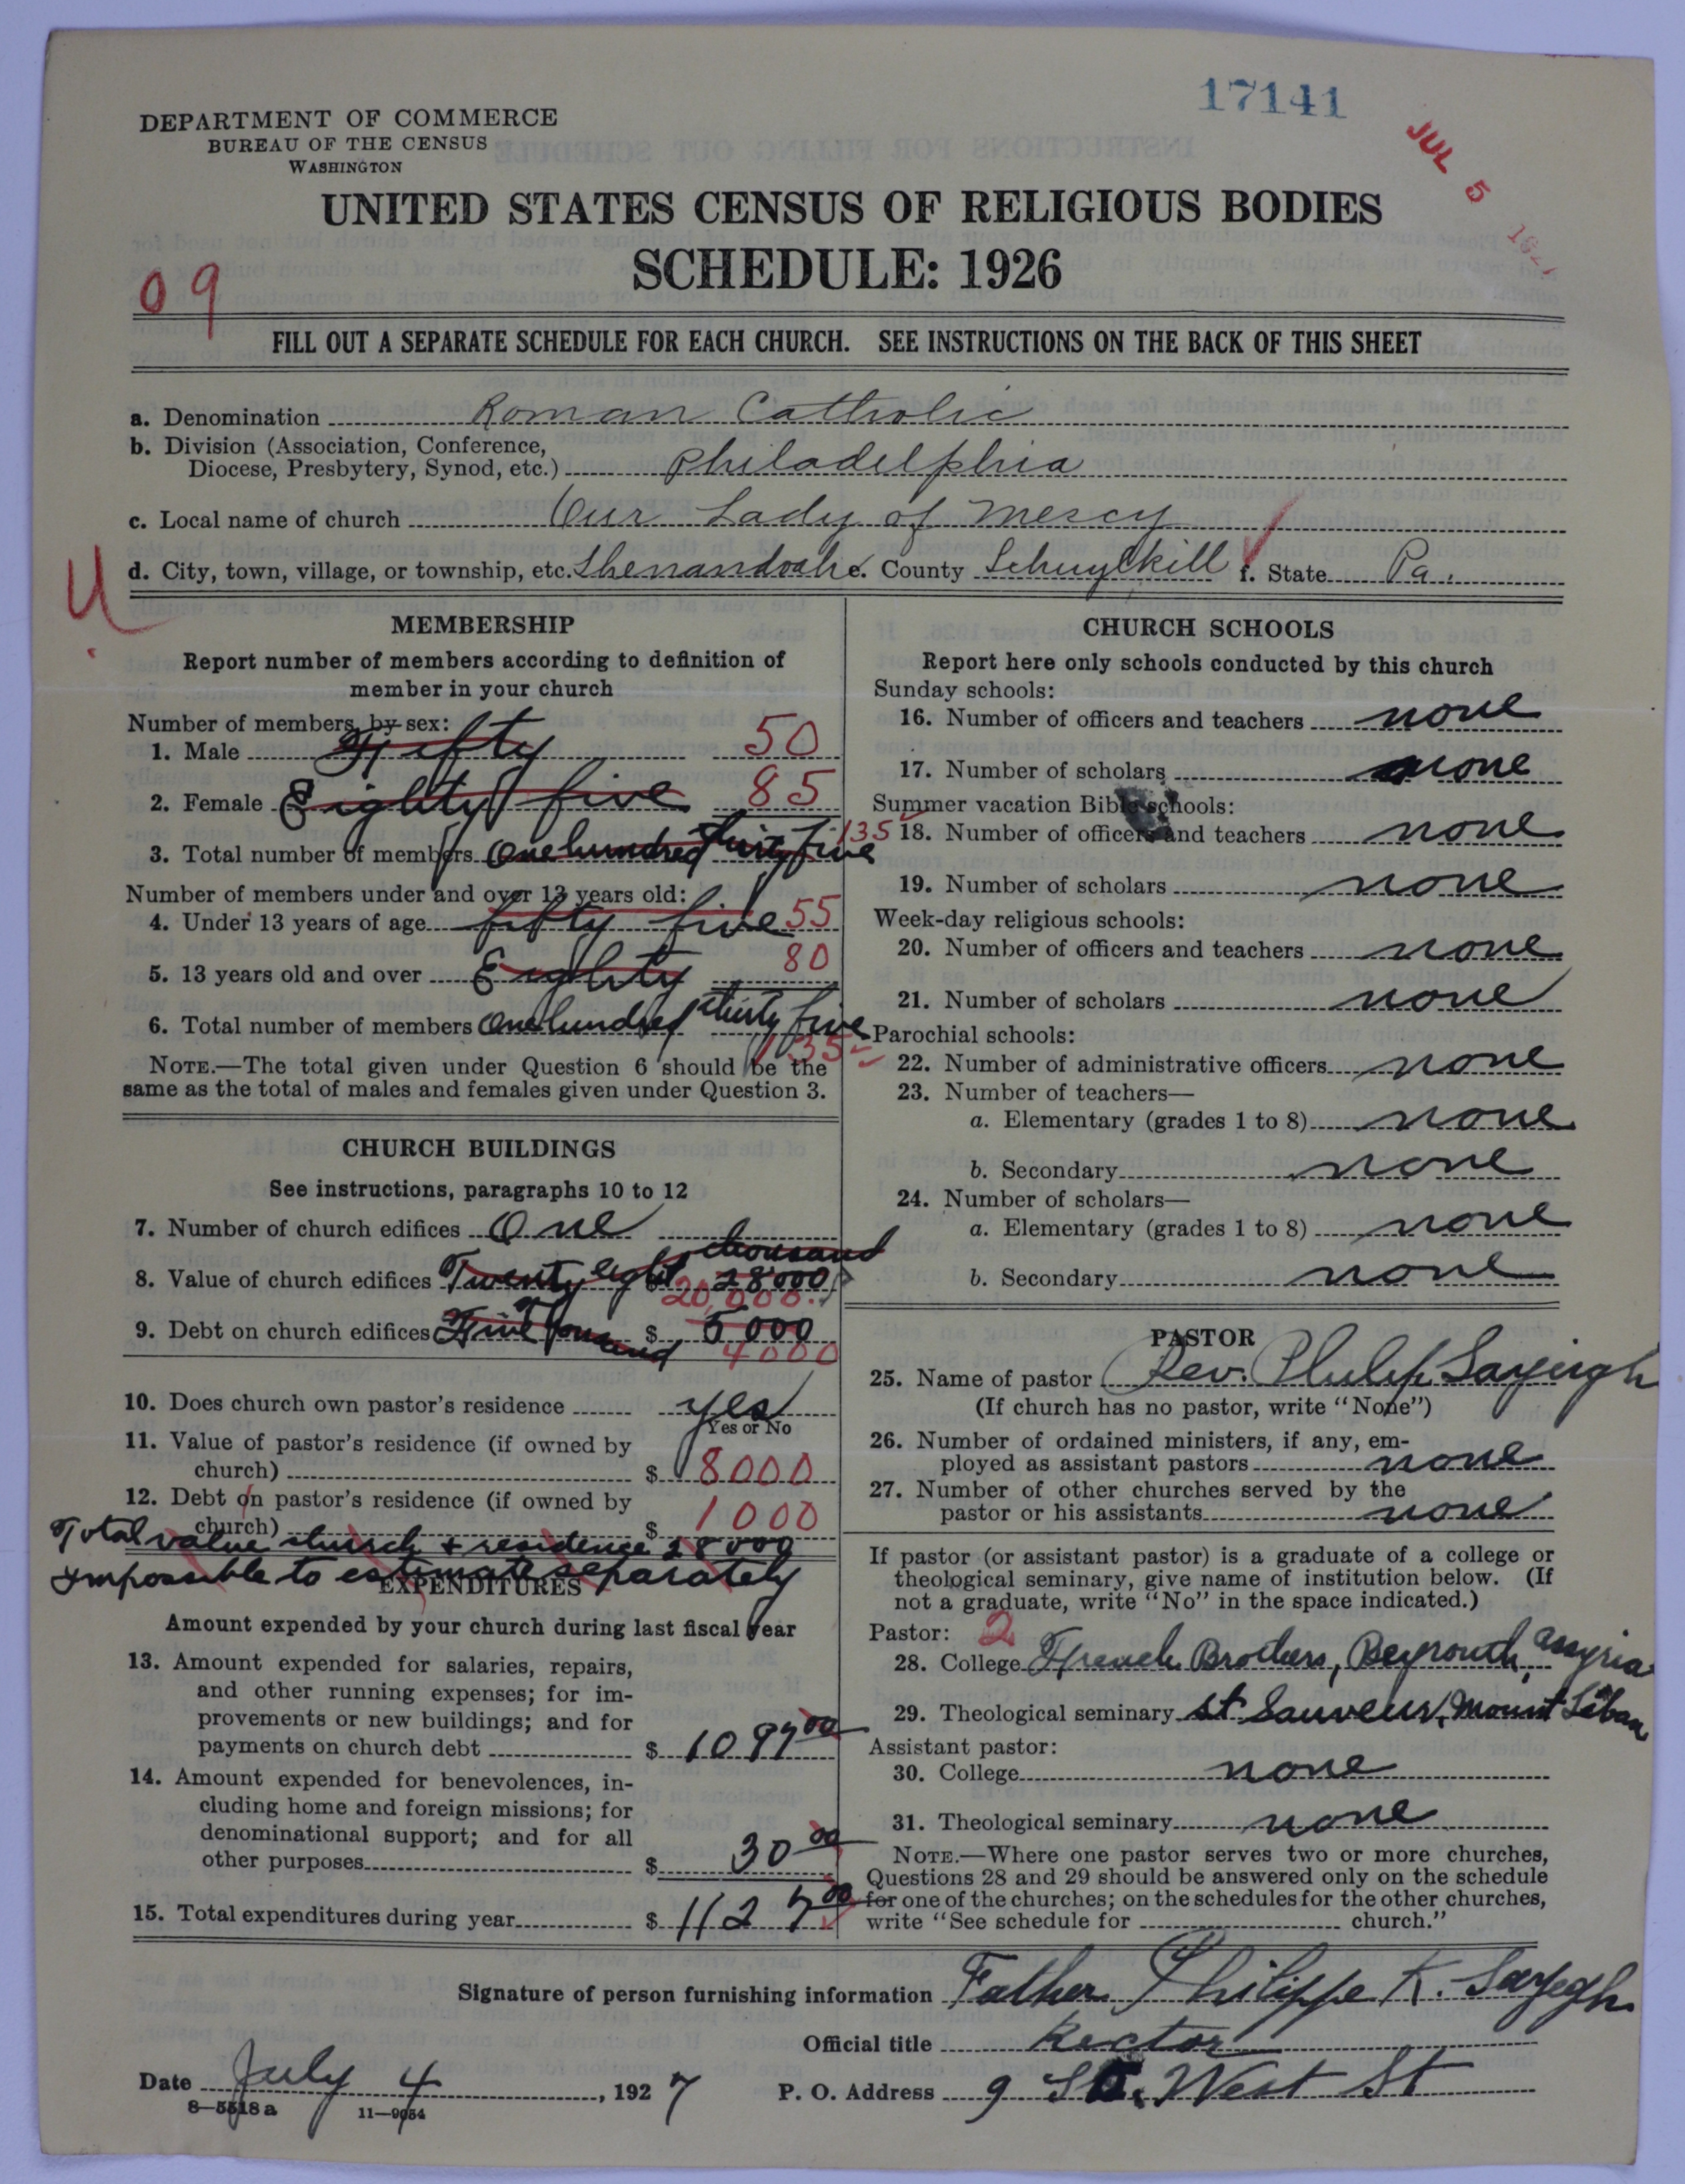 17141
JUL 5 192
DEPARTMENT OF COMMERCE
BUREAU OF THE CENSUS
WASHINGTON
UNITED STATES CENSUS OF RELIGIOUS BODIES
SCHEDULE: 1926
09
FILL OUT A SEPARATE SCHEDULE FOR EACH CHURCH. SEE INSTRUCTIONS ON THE BACK OF THIS SHEET
a. Denomination Roman Catholic
b. Division (Association, Conference,
Diocese, Presbytery, Synod, etc.) Philadelphia
c. Local name of church Our Lady of Mercy
U
d. City, town, village, or township, etc. Shenandoah e. County Schuylkill f. State Pa.
MEMBERSHIP
Report number of members according to definition of
member in your church
Number of members, by sex:
1. Male Fifty 50
2. Female Eighty five 85
3. Total number of members One hundred thirty five 135
Number of members under and over 13 years old:
4. Under 13 years of age fifty five 55
5. 13 years old and over Eighty 80
6. Total number of members One hundred thirty five 135
NOTE.—The total given under Question 6 should be the
same as the total of males and females given under Question 3.
CHURCH BUILDINGS
See instructions, paragraphs 10 to 12
7. Number of church edifices One
8. Value of church edifices Twenty eight thousand $ 28000
20,000.
9. Debt on church edifices Five Tousand $ 5000
4000
10. Does church own pastor's residence yes
Yes or No
11. Value of pastor's residence (if owned by
church) $ 8000
12. Debt on pastor's residence (if owned by
church) $ 1000
Total value church + residence 28000
impossible to estimate separately
EXPENDITURES
Amount expended by your church during last fiscal year
13. Amount expended for salaries, repairs,
and other running expenses; for im-
provements or new buildings; and for
payments on church debt $ 1097 00
14. Amount expended for benevolences, in-
cluding home and foreign missions; for
denominational support; and for all
other purposes $ 30 00
15. Total expenditures during year $ 1127 00
CHURCH SCHOOLS
Report here only schools conducted by this church
Sunday schools:
16. Number of officers and teachers none
17. Number of scholars none
Summer vacation Bible schools:
18. Number of officers and teachers none
19. Number of scholars none
Week-day religious schools:
20. Number of officers and teachers none
21. Number of scholars none
Parochial schools:
22. Number of administrative officers none
23. Number of teachers—
a. Elementary (grades 1 to 8) none
b. Secondary none
24. Number of scholars—
a. Elementary (grades 1 to 8) none
b. Secondary none
PASTOR
25. Name of pastor Rev. Philip Sayeigh
(If church has no pastor, write "None")
26. Number of ordained ministers, if any, em-
ployed as assistant pastors none
27. Number of other churches served by the
pastor or his assistants none
If pastor (or assistant pastor) is a graduate of a college or
theological seminary, give name of institution below. (If
not a graduate, write "No" in the space indicated.)
Pastor: 2
28. College French Brothers, Beyrouth, assyria
29. Theological seminary st Sauveur, Mount Liban
Assistant pastor:
30. College none
31. Theological seminary none
NOTE.—Where one pastor serves two or more churches,
Questions 28 and 29 should be answered only on the schedule
for one of the churches; on the schedules for the other churches,
write "See schedule for church."
Signature of person furnishing information Father Philippe K. Sayegh
Official title Rector
Date July 4, 1927 P. O. Address 9 So. West St
8—5518 a 11—9054